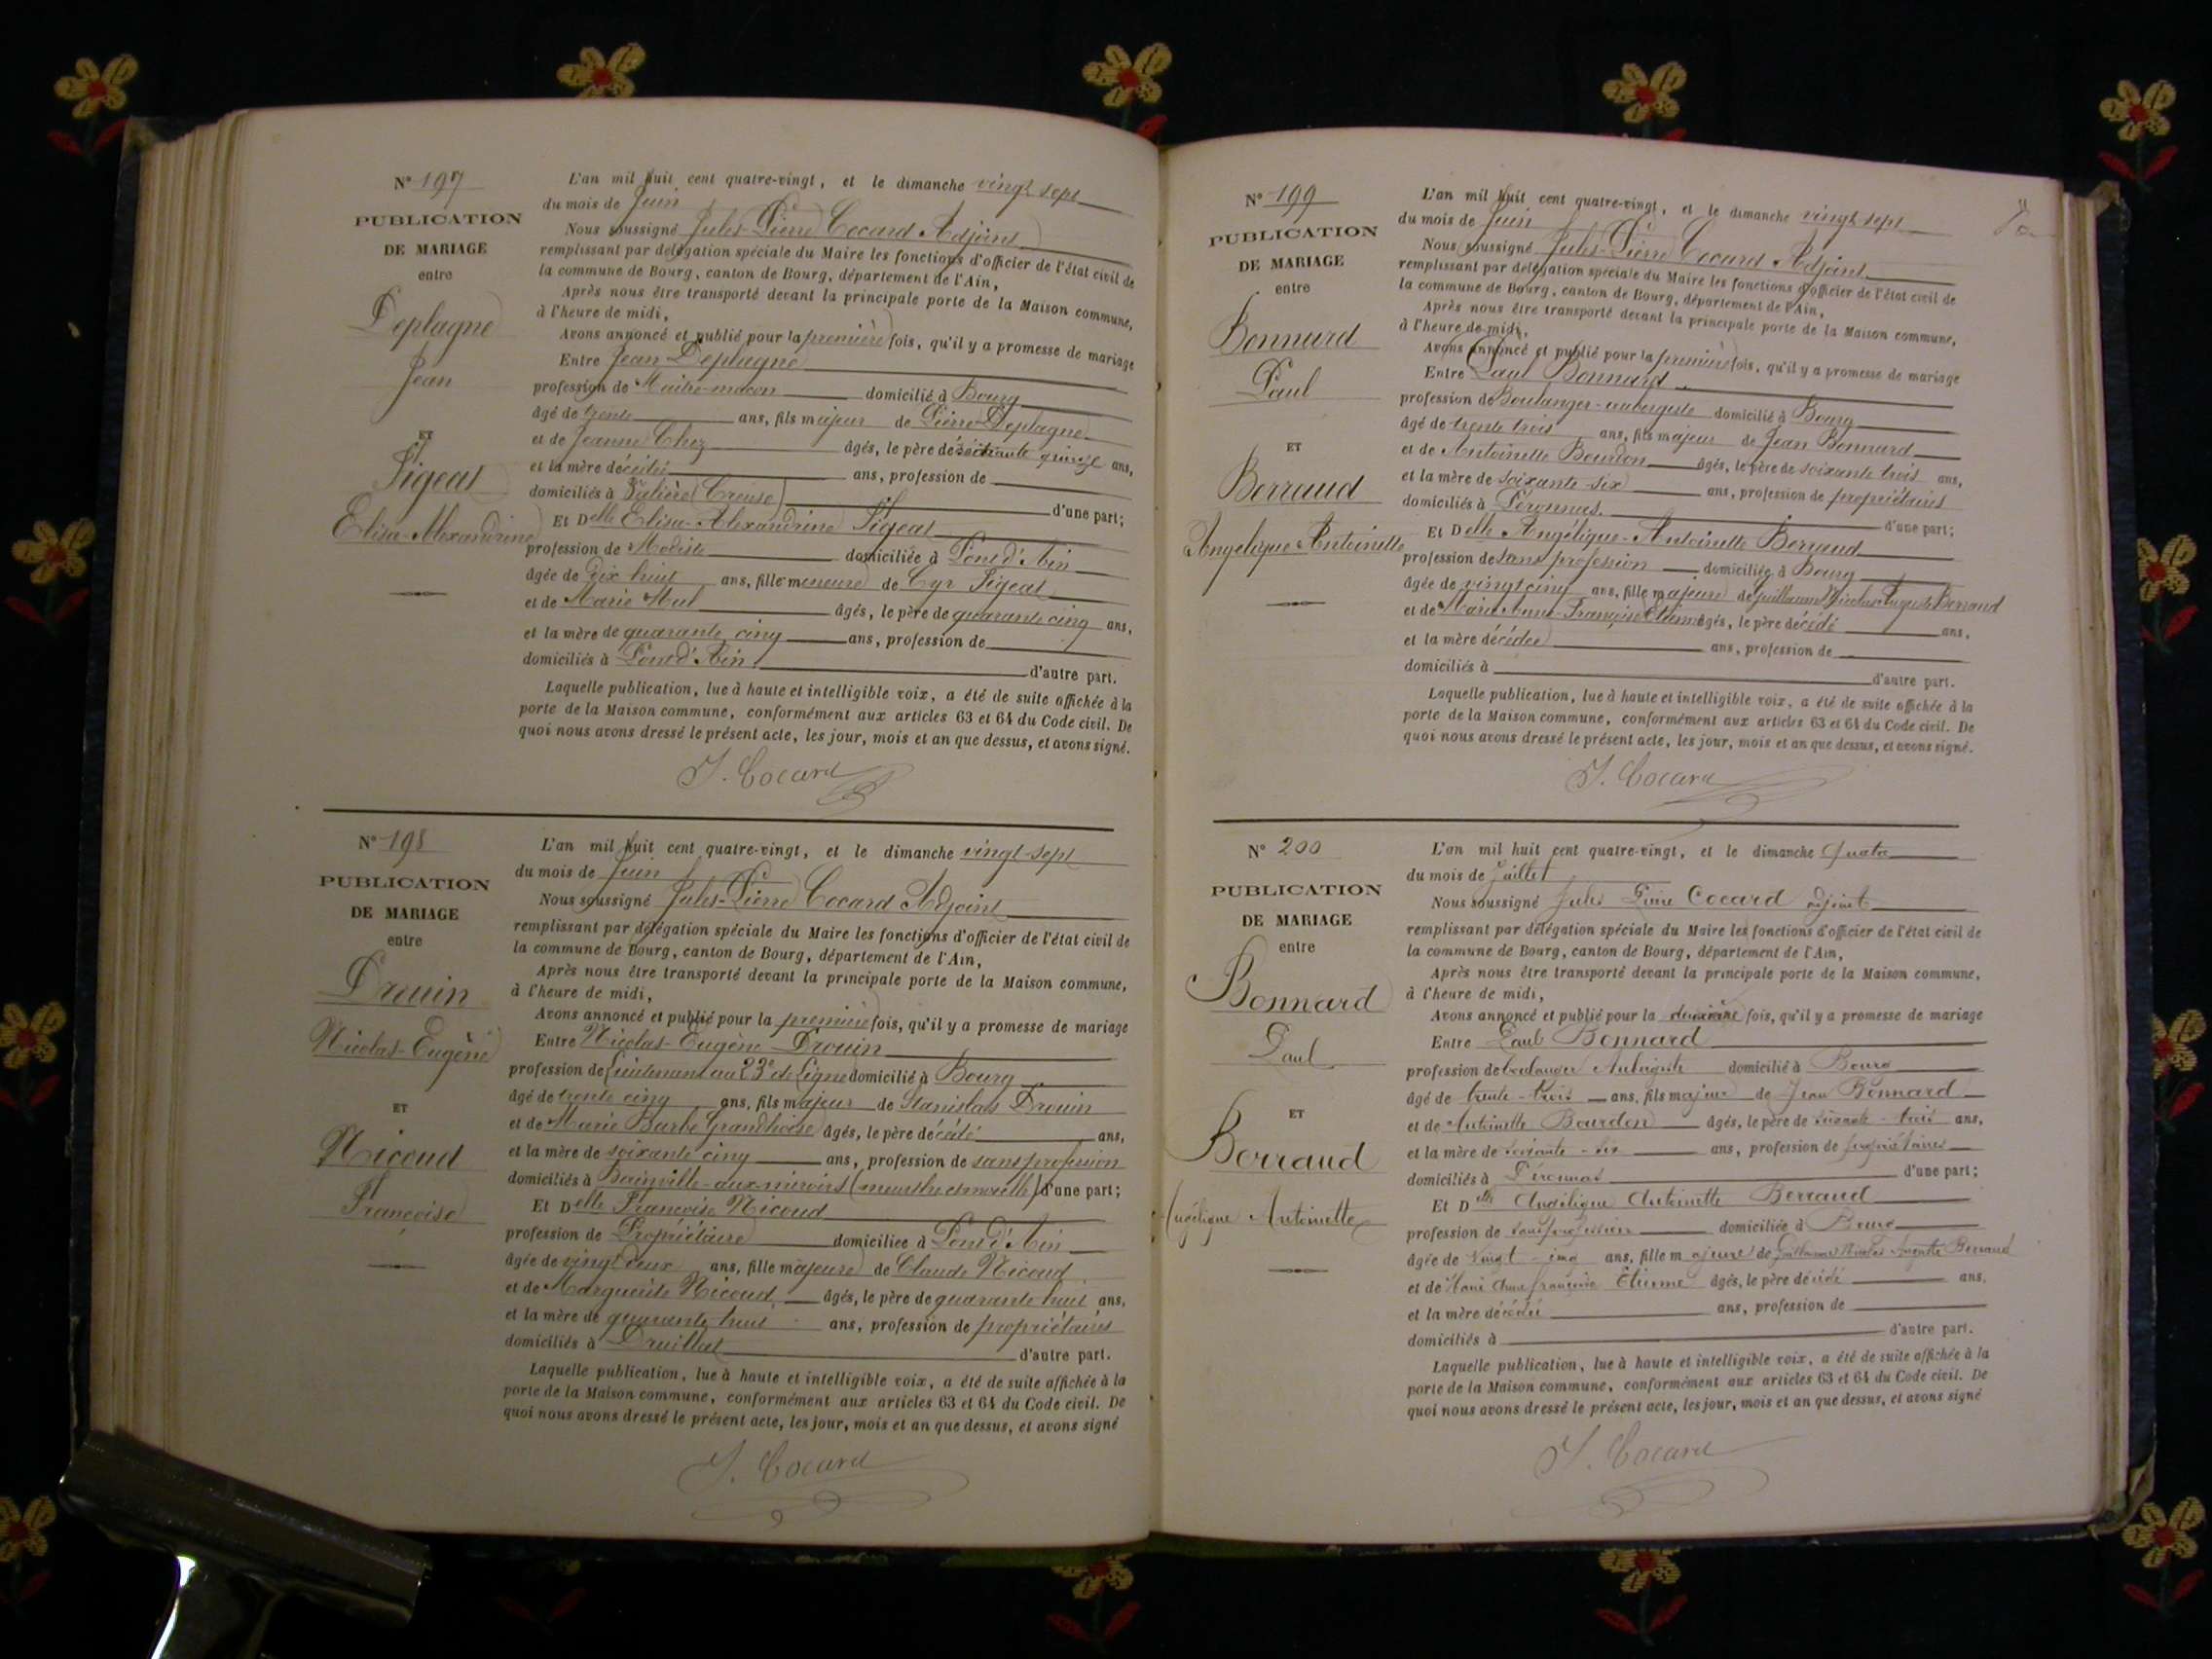 N° 197
PUBLICATION
DE MARIAGE
entre
Deplagne
Jean
ET
Pigeat
Elisa-Alexandrine
L'an mil huit cent quatre-vingt, et le dimanche vingt sept
du mois de Juin
Nous soussigné Jules-Pierre Cocard Adjoint
remplissant par délégation spéciale du Maire les fonctions d'officier de l'état civil de
la commune de Bourg, canton de Bourg, département de l'Ain,
Après nous être transporté devant la principale porte de la Maison commune,
à l'heure de midi,
Avons annoncé et publié pour la première fois, qu'il y a promesse de mariage
Entre Jean Deplagne
profession de Maitre-maçon domicilié à Bourg
âgé de trente ans, fils majeur de Pierre Deplagne
et de Jeanne Chez âgés, le père de soixante quinze ans,
et la mère décédée ans, profession de
domiciliés à (Creuse) d'une part;
Et Delle Elisa-Alexandrine Pigeat
profession de Modiste domiciliée à Pont d'Ain
âgée de dix huit ans, fille mineure de Cyr Pigeat
et de Marie âgés, le père de quarante cinq ans,
et la mère de quarante cinq ans, profession de
domiciliés à Pont d'Ain d'autre part.
Laquelle publication, lue à haute et intelligible voix, a été de suite affichée à la
porte de la Maison commune, conformément aux articles 63 et 64 du Code civil. De
quoi nous avons dressé le présent acte, les jour, mois et an que dessus, et avons signé.
J. Cocard
N° 198
PUBLICATION
DE MARIAGE
entre
Drouin
Nicolas-Eugène
ET
Nicoud
Françoise
L'an mil huit cent quatre-vingt, et le dimanche vingt-sept
du mois de Juin
Nous soussigné Jules-Pierre Cocard Adjoint
remplissant par délégation spéciale du Maire les fonctions d'officier de l'état civil de
la commune de Bourg, canton de Bourg, département de l'Ain,
Après nous être transporté devant la principale porte de la Maison commune,
à l'heure de midi,
Avons annoncé et publié pour la première fois, qu'il y a promesse de mariage
Entre Nicolas-Eugène Drouin
profession de Lieutenant au 23e de Ligne domicilié à Bourg
âgé de trente cinq ans, fils majeur de Stanislas Drouin
et de Marie Barbe Grandhoise âgés, le père décédé ans,
et la mère de soixante cinq ans, profession de sans profession
domiciliés à Bainville-aux-miroirs (meurthe et moselle) d'une part;
Et Delle Françoise Nicoud
profession de Propriétaire domiciliée à Pont d'Ain
âgée de vingt deux ans, fille majeure de Claude Nicoud
et de Marguerite Nicoud, âgés, le père de quarante huit ans,
et la mère de quarante huit ans, profession de propriétaires
domiciliés à Druillat d'autre part.
Laquelle publication, lue à haute et intelligible voix, a été de suite affichée à la
porte de la Maison commune, conformément aux articles 63 et 64 du Code civil. De
quoi nous avons dressé le présent acte, les jour, mois et an que dessus, et avons signé
J. Cocard
N° 199
PUBLICATION
DE MARIAGE
entre
Bonnard
Paul
ET
Berraud
Angélique Antoinette
L'an mil huit cent quatre-vingt, et le dimanche vingt sept
du mois de Juin
Nous soussigné Jules-Pierre Cocard Adjoint
remplissant par délégation spéciale du Maire les fonctions d'officier de l'état civil de
la commune de Bourg, canton de Bourg, département de l'Ain,
Après nous être transporté devant la principale porte de la Maison commune,
à l'heure de midi,
Avons annoncé et publié pour la première fois, qu'il y a promesse de mariage
Entre Paul Bonnard
profession de Boulanger-aubergiste domicilié à Bourg
âgé de trente trois ans, fils majeur de Jean Bonnard
et de Antoinette Bourdon âgés, le père de soixante trois ans,
et la mère de soixante-six ans, profession de propriétaires
domiciliés à Péronnas. d'une part;
Et Delle Angélique-Antoinette Berraud
profession de sans profession domiciliée à Bourg
âgée de vingt cinq ans, fille majeure de Guillaume Nicolas Auguste Berraud
et de Marie Anne Françoise Etienne âgés, le père décédé ans,
et la mère décédée ans, profession de
domiciliés à d'autre part.
Laquelle publication, lue à haute et intelligible voix, a été de suite affichée à la
porte de la Maison commune, conformément aux articles 63 et 64 du Code civil. De
quoi nous avons dressé le présent acte, les jour, mois et an que dessus, et avons signé.
J. Cocard
N° 200
PUBLICATION
DE MARIAGE
entre
Bonnard
Paul
ET
Berraud
Angélique Antoinette
L'an mil huit cent quatre-vingt, et le dimanche Quatre
du mois de Juillet
Nous soussigné Jules Pierre Cocard adjoint
remplissant par délégation spéciale du Maire les fonctions d'officier de l'état civil de
la commune de Bourg, canton de Bourg, département de l'Ain,
Après nous être transporté devant la principale porte de la Maison commune,
à l'heure de midi,
Avons annoncé et publié pour la deuxième fois, qu'il y a promesse de mariage
Entre Paul Bonnard
profession de boulanger Aubergiste domicilié à Bourg
âgé de trente-trois ans, fils majeur de Jean Bonnard
et de Antoinette Bourdon âgés, le père de soixante-trois ans,
et la mère de soixante-six ans, profession de propriétaires
domiciliés à Péronnas d'une part;
Et Delle Angélique Antoinette Berraud
profession de sans profession domiciliée à Bourg
âgée de vingt-cinq ans, fille majeure de Guillaume Nicolas Auguste Berraud
et de Marie Anne françoise Etienne âgés, le père décédé ans,
et la mère décédée ans, profession de
domiciliés à d'autre part.
Laquelle publication, lue à haute et intelligible voix, a été de suite affichée à la
porte de la Maison commune, conformément aux articles 63 et 64 du Code civil. De
quoi nous avons dressé le présent acte, les jour, mois et an que dessus, et avons signé
J. Cocard